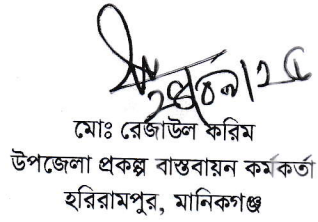 মোঃ রেজাউল করিম
উপজেলা প্রকল্প বাস্তবায়ন কর্মকর্তা
হরিরামপুর, মানিকগঞ্জ